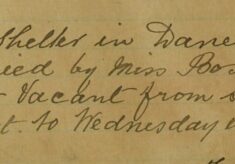 Shelter in Dane
ied by Miss Bo
Vacant from
t. to Wednesday